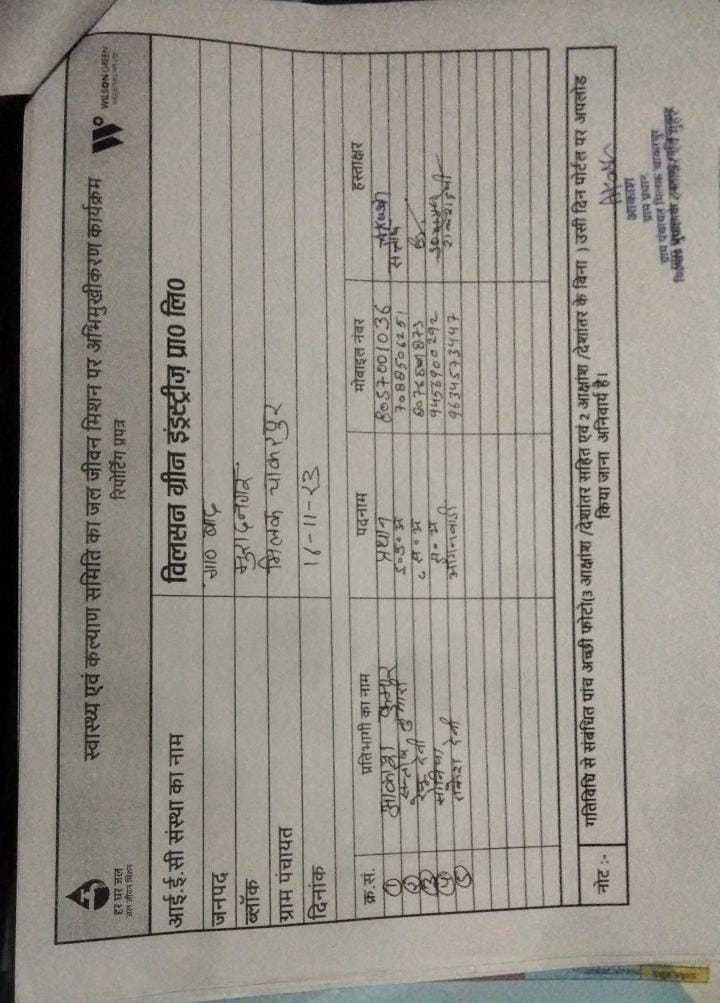 स्वास्थ्य एवं कल्याण समिति का जल जीवन मिशन पर अभिमुखीकरण कार्यक्रम
रिपोर्टिंग प्रपत्र
हर घर जल
जल जीवन मिशन
WILSON GREEN
आई.ई.सी संस्था का नाम विलसन ग्रीन इंडस्ट्रीज़ प्रा0 लि0
जनपद गा0 बाद
ब्लॉक मुरादनगर
ग्राम पंचायत मिलक चाकरपुर
दिनांक
क्र.सं. प्रतिभागी का नाम पदनाम मोबाइल नंबर हस्ताक्षर
1 आकाश कुमार प्रधान 8057001036
2 सन्तोष कुमारी 7088506251 सन्तोष
3 रेनू देवी
4 9456900292
5 राकेश देवी आंगनवाडी 9634573447
नोट :- गतिविधि से संबंधित पांच अच्छी फोटो(3 आक्षांश /देशांतर सहित एवं 2 आक्षांश /देशांतर के बिना ) उसी दिन पोर्टल पर अपलोड
किया जाना अनिवार्य है।
आकाश
ग्राम प्रधान
ग्राम पंचायत मिलक चाकरपुर